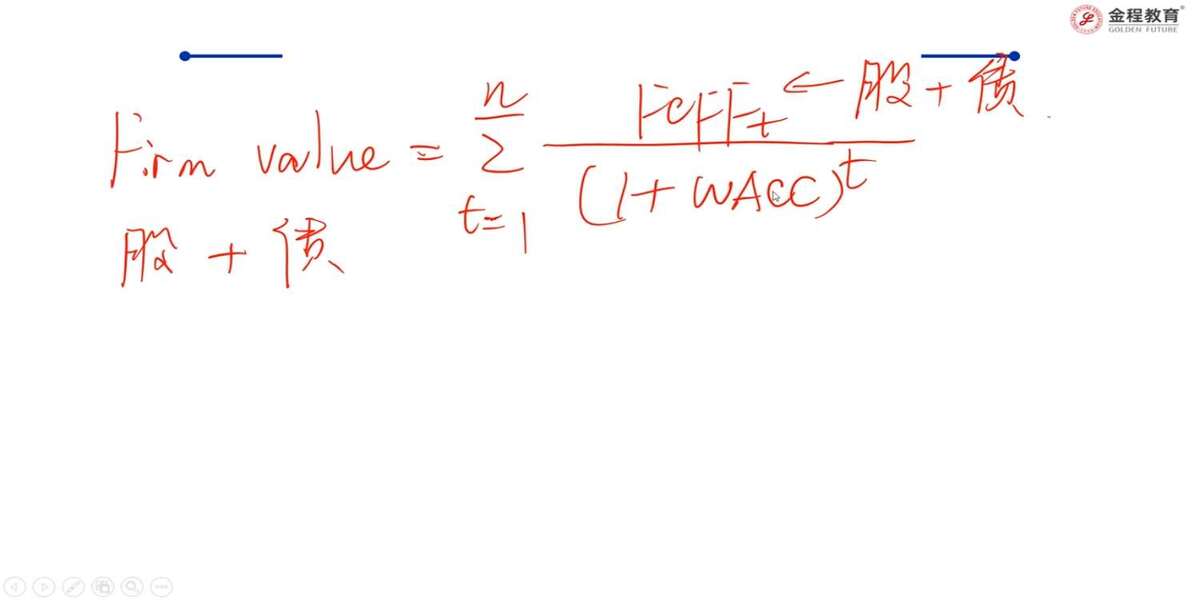 金程教育®
GOLDEN FUTURE
Firm value = n∑t=1 FCFFt/(1+WACC)^t ← 股+债
股 + 债